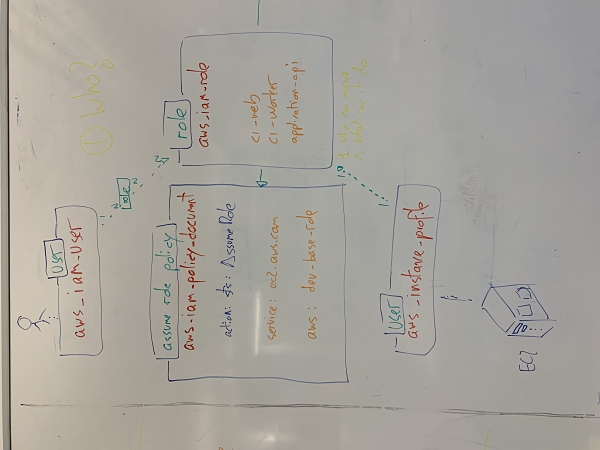 user
aws_iam_user
① Who?
role
assume role policy
aws_iam_policy_document
action: sts: AssumeRole
service: ec2.aws.com
aws: dev-base-role
role
aws_iam_role
ci-web
ci-worker
application-api
1. Who can assume
2. what can it do
user
aws_instave_profile
EC2